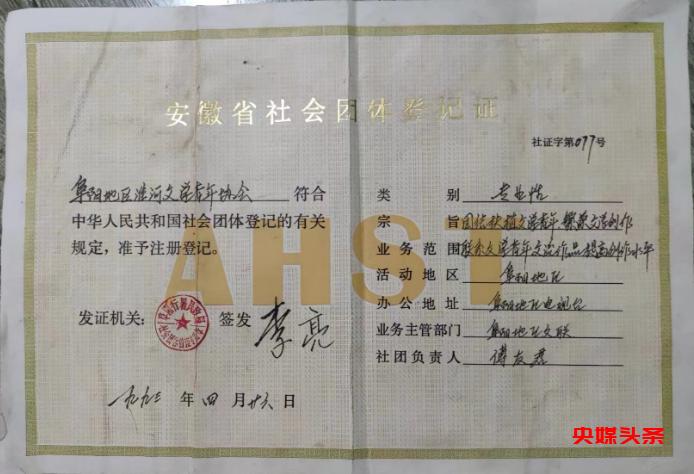 安徽省社会团体登记证
社证字第077号
阜阳地区淮河文学青年协会 符合
中华人民共和国社会团体登记的有关
规定，准予注册登记。
发证机关： 签发 李亮
一九九三年四月廿六日
类别 专业性
宗旨 团结扶植文学青年 繁荣文学创作
业务范围 联系文学青年交流作品提高创作水平
活动地区 阜阳地区
办公地址 阜阳地区电视台
业务主管部门 阜阳地区文联
社团负责人 傅友君
AHST
央媒头条